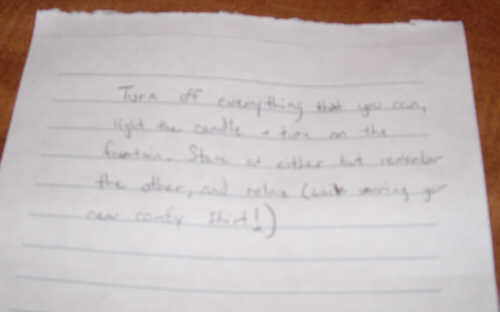 Turn off everything that you can,
light the candle + turn on the
fountain. Stare at either but remember
the other, and relax (while wearing your
new comfy shirt!)